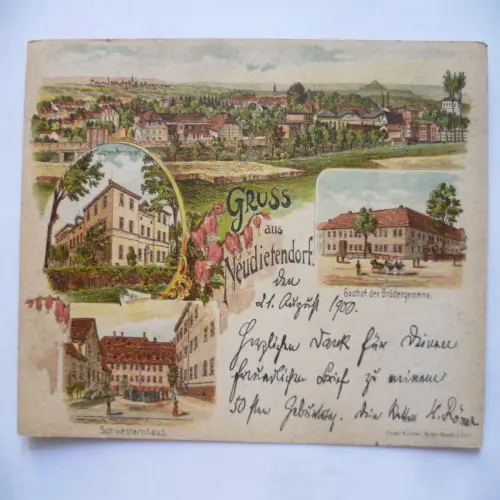 Gruss
aus
Neudietendorf.
den
21. August 1900.
Gasthof der Brüdergemeine.
Herzlichen Dank für Deinen
freundlichen Brief zu meinem
50sten Geburtstag. Dein
Schwesternhaus.